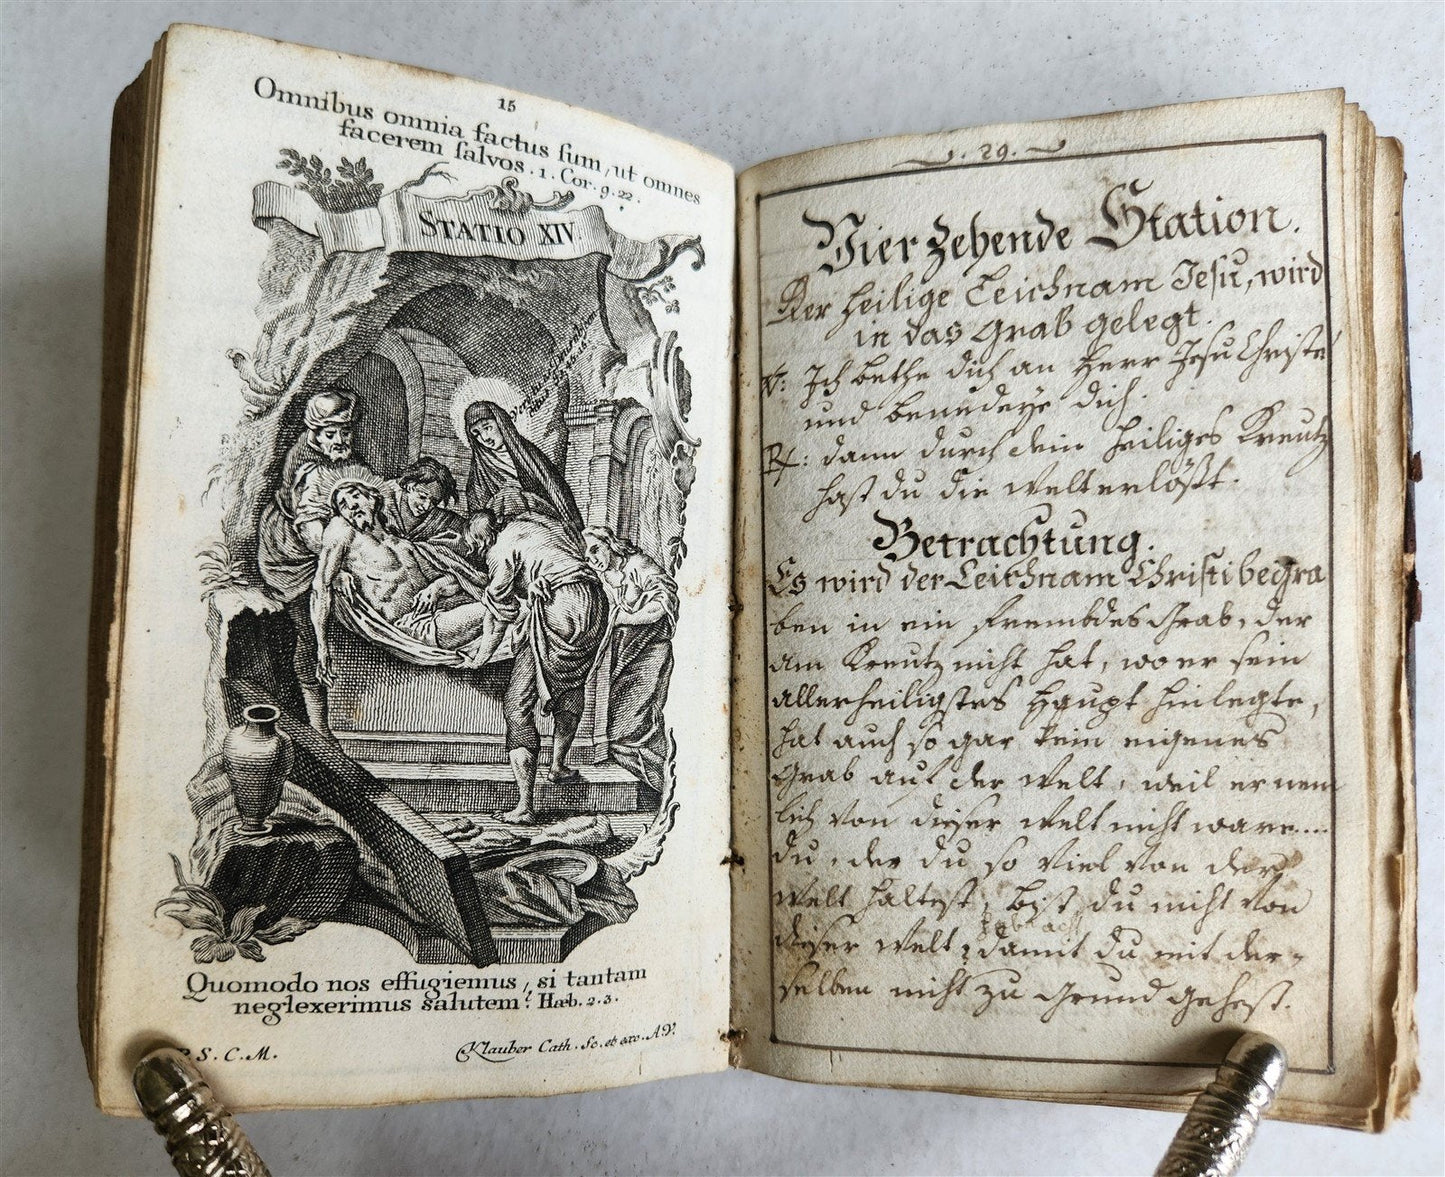 15
Omnibus omnia factus ſum, ut omnes
facerem ſalvos. 1. Cor. 9. 22.
STATIO XIV.
Quomodo nos effugiemus, si tantam
neglexerimus salutem? Hæb. 2. 3.
S. C. M.
Klauber Cath. Sc. et exc. A.V.
. 29.
Vierzehende Station.
Der heilige Leichnam Jeſu, wird
in das Grab gelegt.
V: Ich bethe dich an Herr Jeſu Christe
und benedeye dich.
R: dann durch dein heiliges Kreutz
hast du die Welt erlößt.
Betrachtung.
Es wird der Leichnam Christi begra
ben in ein frembdes Grab, der
am Kreutz nicht hat, wo er sein
allerheiligstes Haupt hinlegte,
hat auch so gar kein eigenes
Grab auf der Welt, weil er nem
lich von dieser Welt nicht ware....
du, der du so viel von der
Welt haltest, bist du nicht von
dieser Welt, damit du mit der-
selben nicht zu Grund gehest.